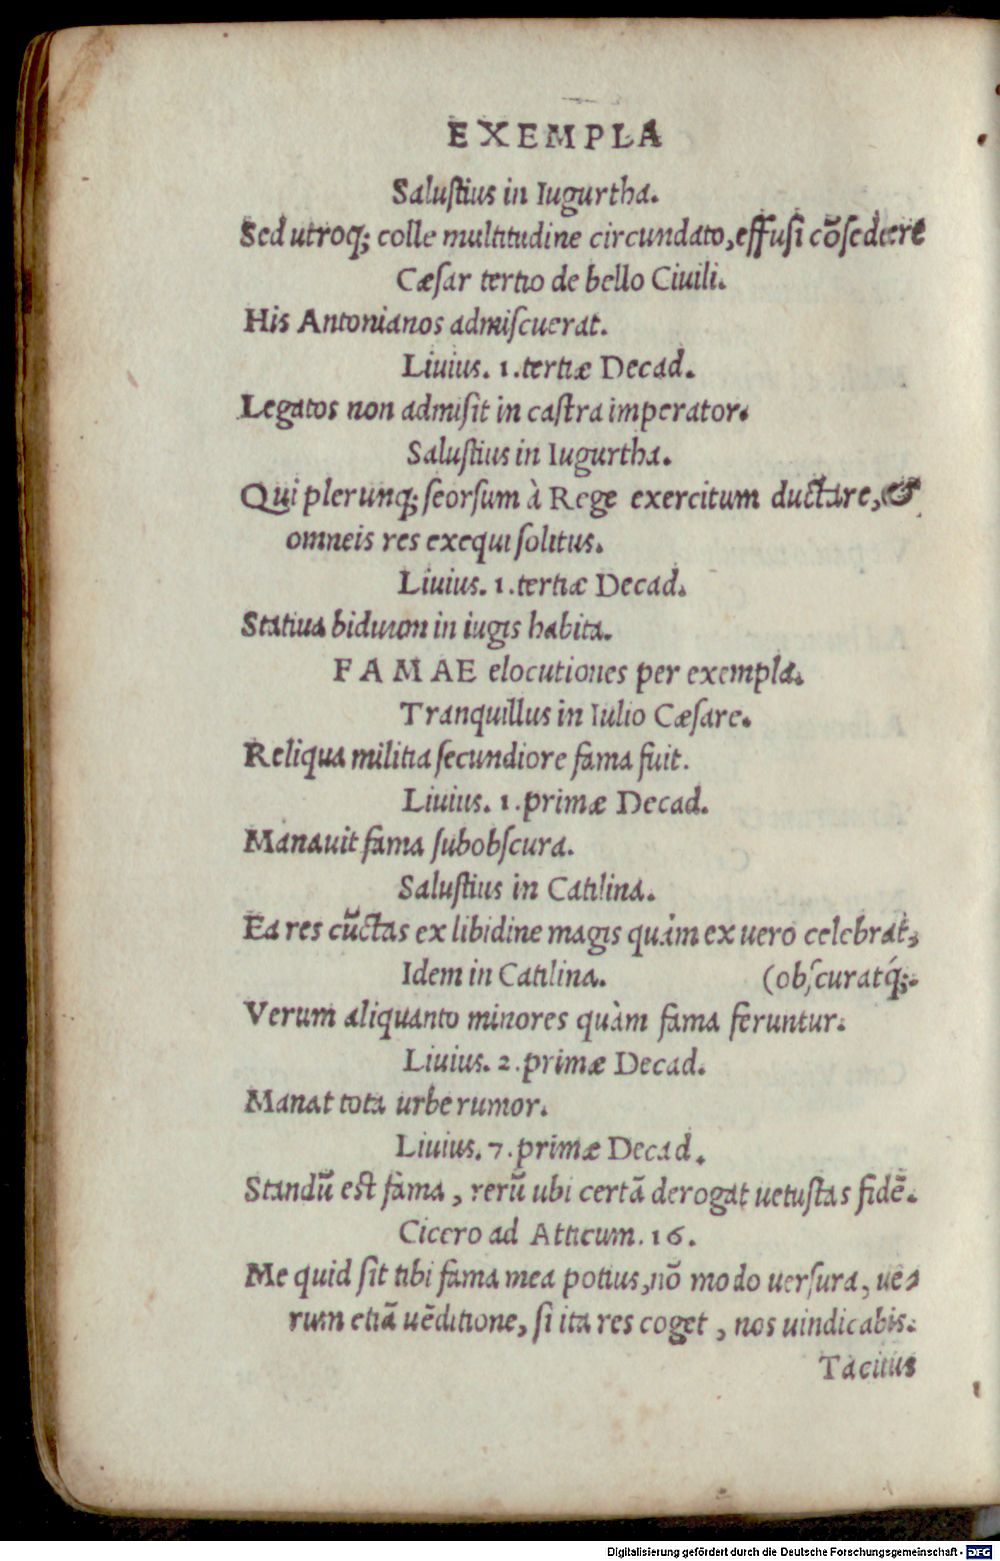 EXEMPLA
Saluſtius in Iugurtha.
Sed utroq; colle multitudine circundato, effuſi cõſedere
Cæſar tertio de bello Ciuili.
His Antonianos admiſcuerat.
Liuius. 1. tertiæ Decad.
Legatos non admiſit in caſtra imperator.
Saluſtius in Iugurtha.
Qui plerunq; ſeorſum à Rege exercitum ductare, &
omneis res exequi ſolitus.
Liuius. 1. tertiæ Decad.
Statiua biduum in iugis habita.
FAMAE elocutiones per exempla.
Tranquillus in Iulio Cæſare.
Reliqua militia ſecundiore fama fuit.
Liuius. 1. primæ Decad.
Manauit fama ſubobſcura.
Saluſtius in Catilina.
Ea res cũctas ex libidine magis quàm ex uero celebrat,
Idem in Catilina. (obſcuratq́;.
Verum aliquanto minores quàm fama feruntur.
Liuius. 2. primæ Decad.
Manat tota urbe rumor.
Liuius. 7. primæ Decad.
Standũ eſt fama, rerũ ubi certã derogat uetuſtas fidẽ.
Cicero ad Atticum. 16.
Me quid ſit tibi fama mea potius, nõ modo uerſura, ue⸗
rum etiã uẽditione, ſi ita res coget, nos uindicabis.
Tacitus
Digitalisierung gefördert durch die Deutsche Forschungsgemeinschaft - DFG